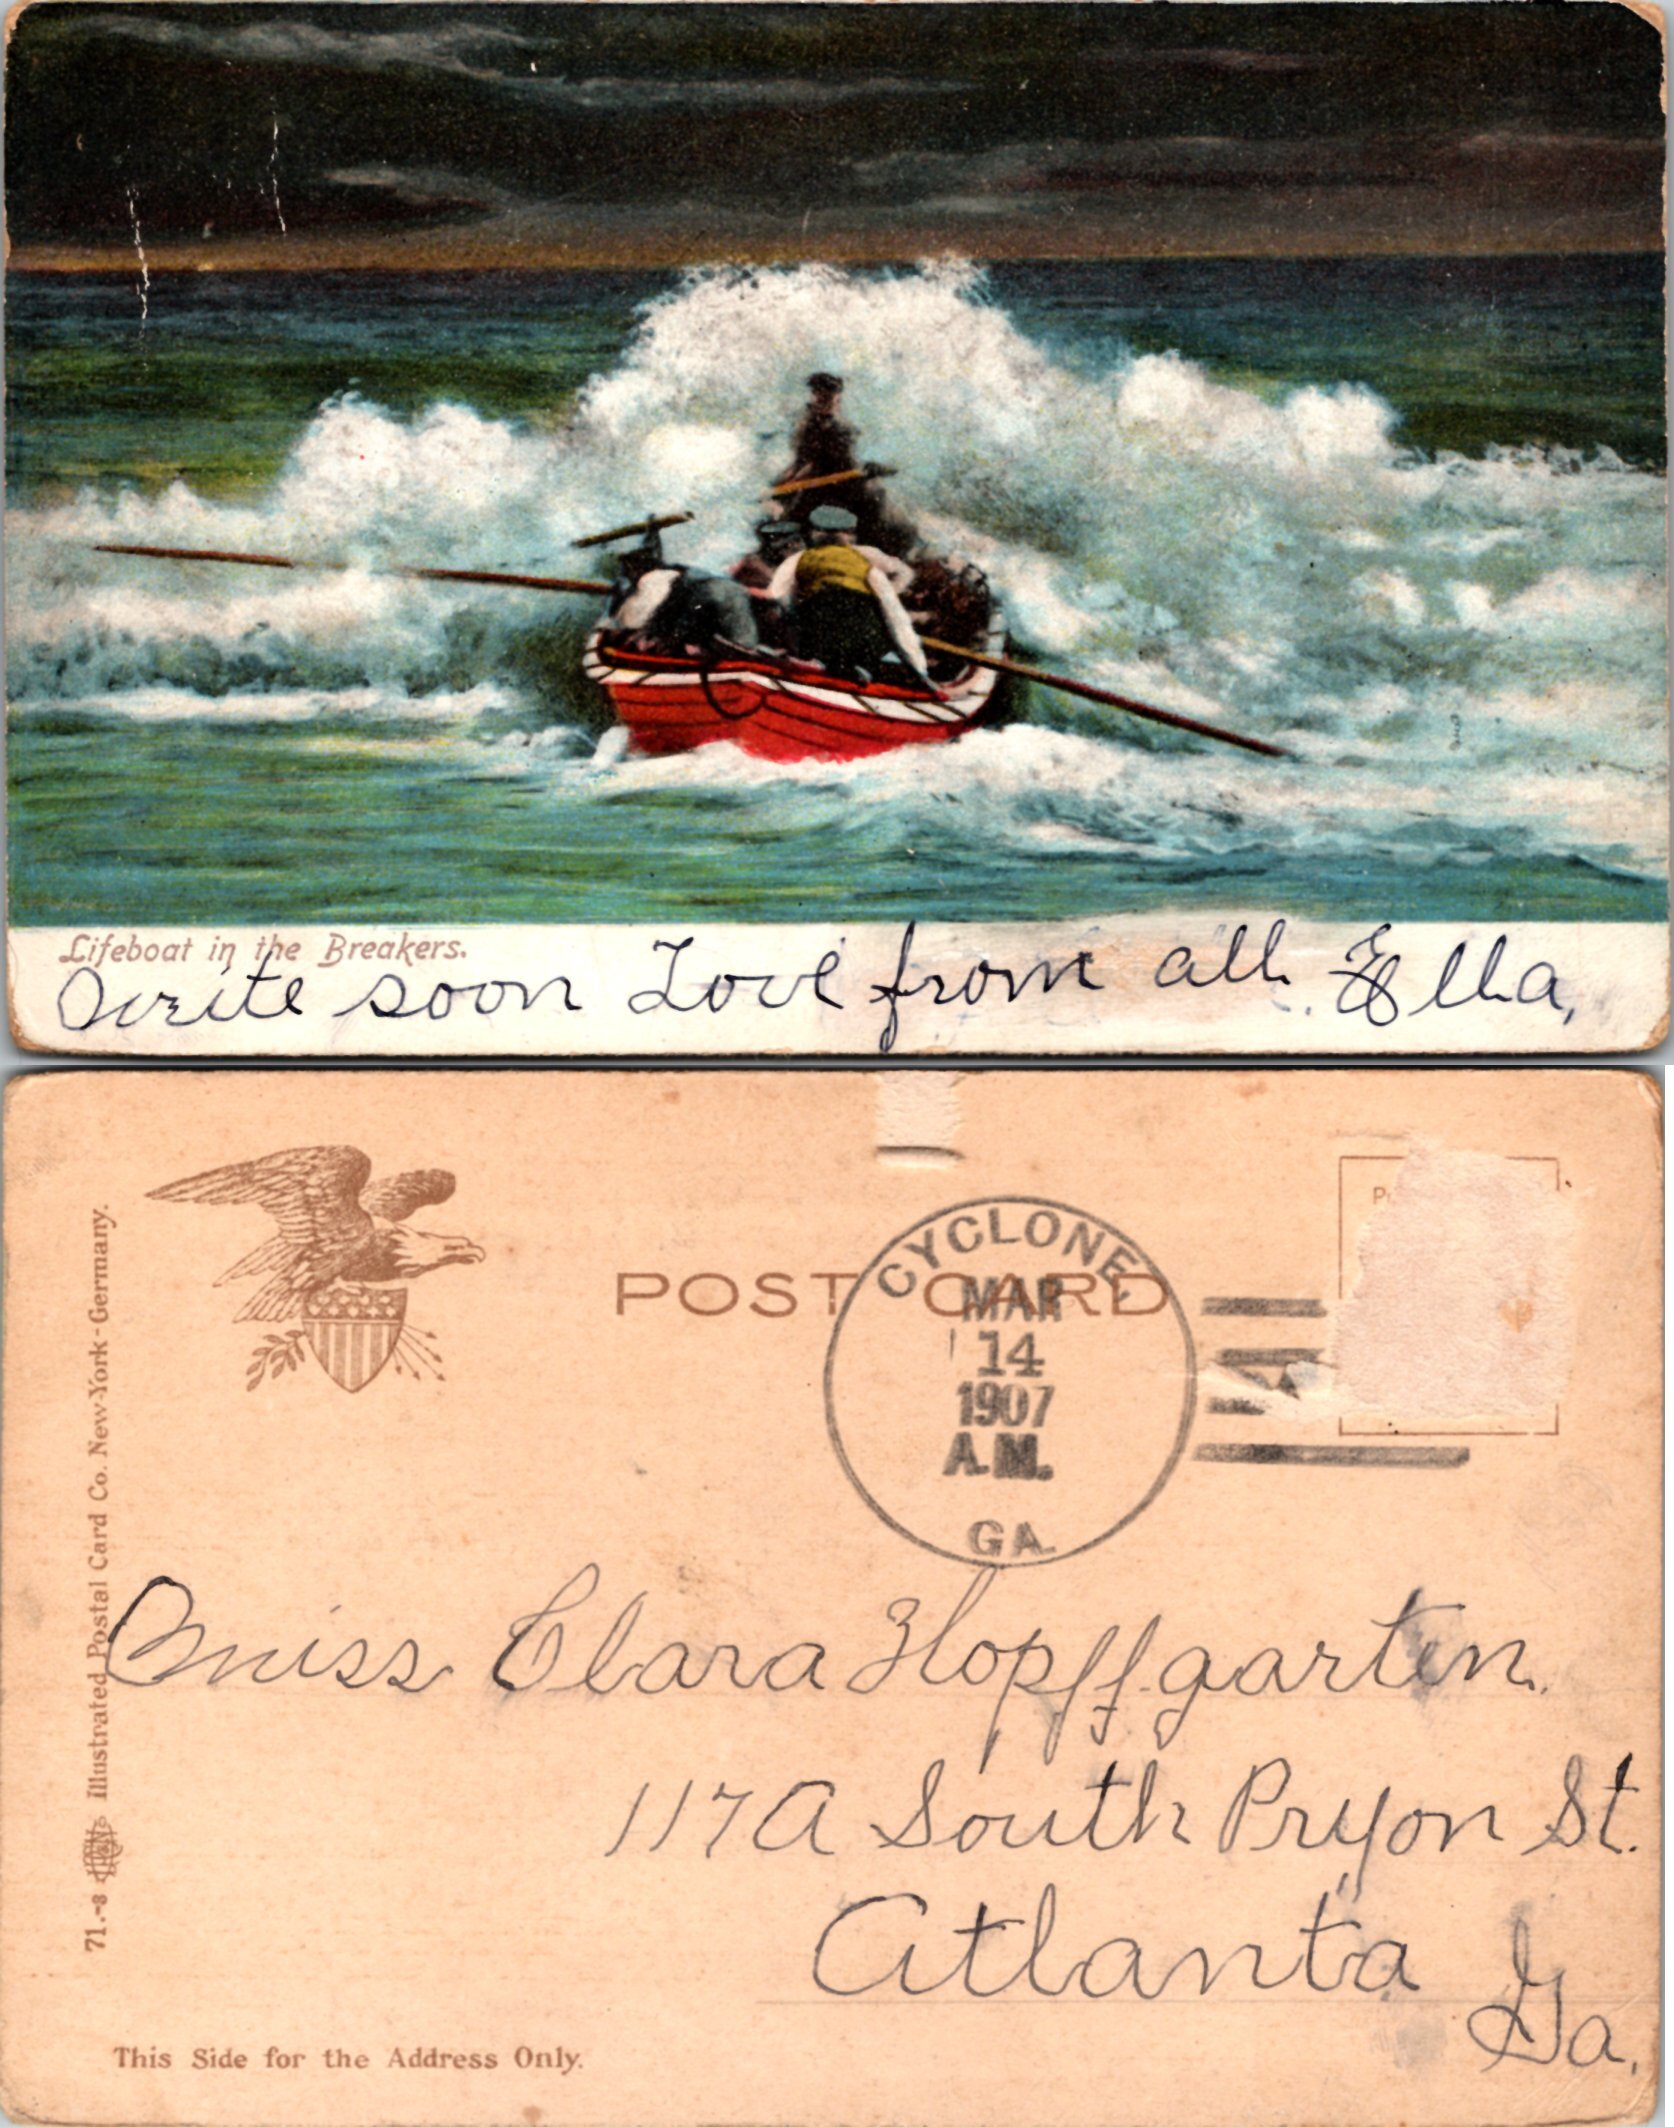 Lifeboat in the Breakers.
Write soon Love from all. Ella,
POST CARD
CYCLONE
MAR
14
1907
A.M.
GA.
71.-8 Illustrated Postal Card Co. New-York-Germany.
Miss Clara Hopffgarten.
117A South Pryon St.
Atlanta
Ga.
This Side for the Address Only.